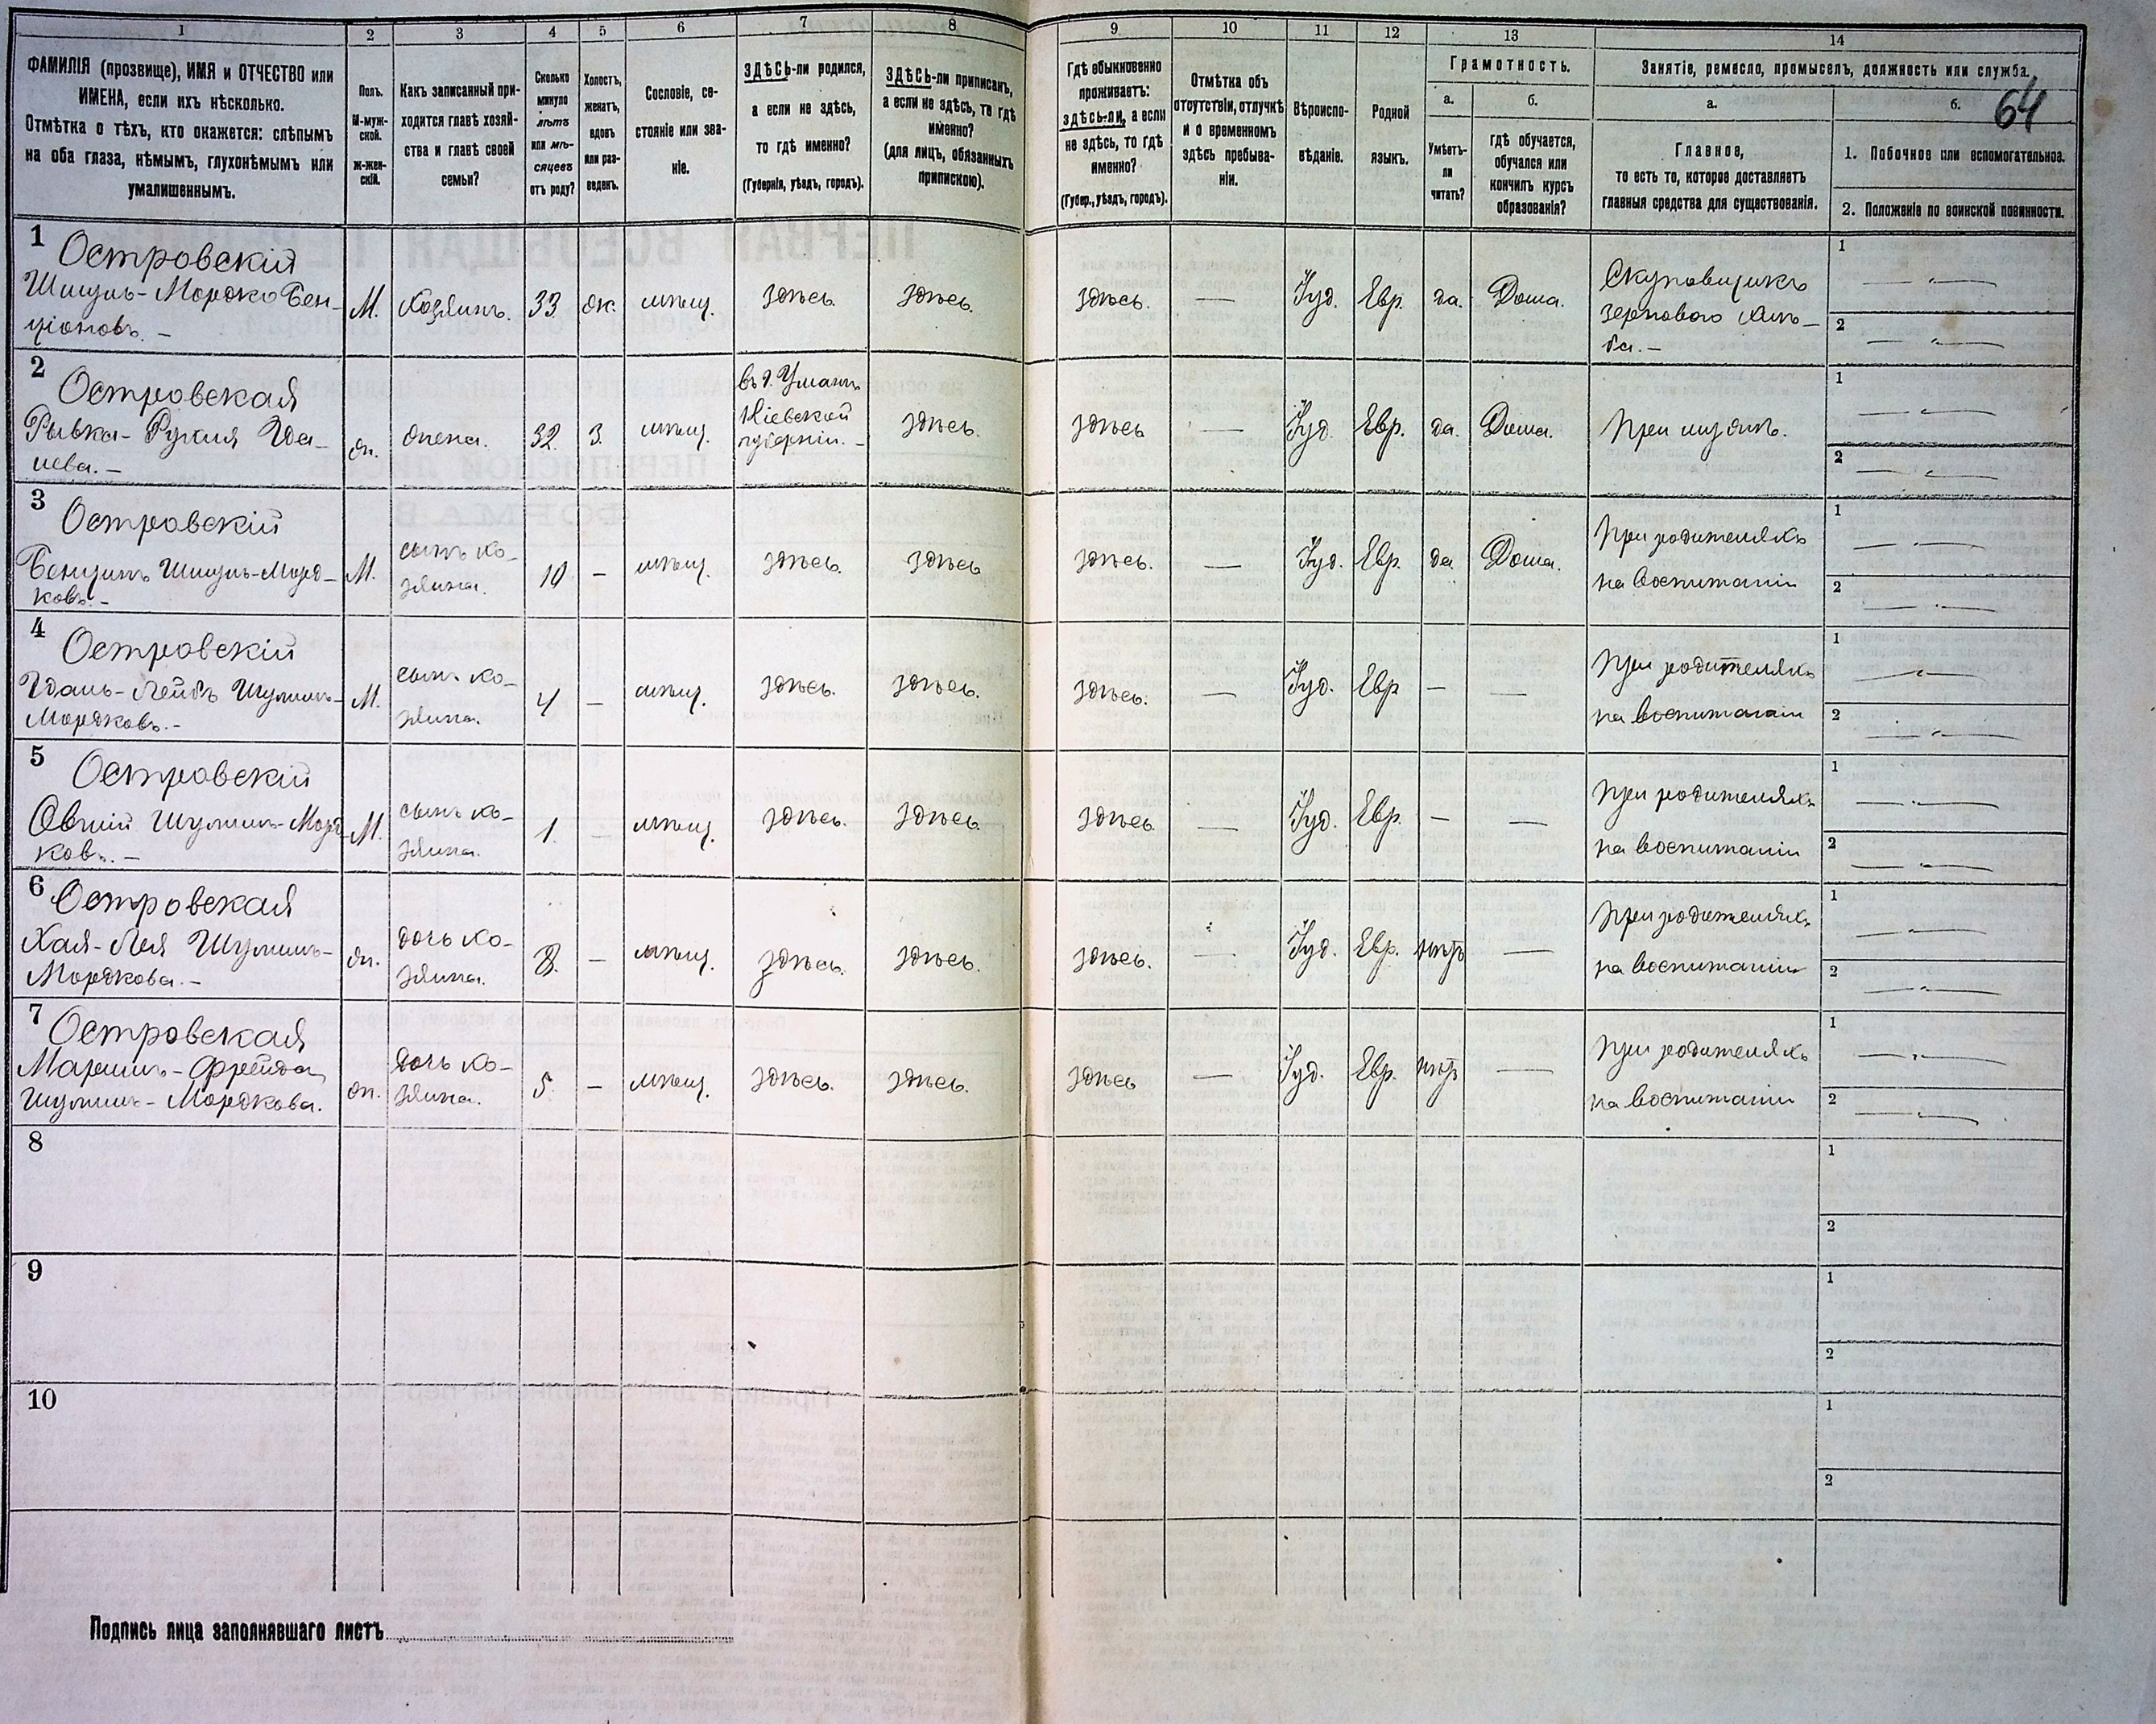 1 2 3 4 5 6 7 8 9 10 11 12 13 14
ФАМИЛІЯ (прозвище), ИМЯ и ОТЧЕСТВО или
ИМЕНА, если ихъ нѣсколько.
Отмѣтка о тѣхъ, кто окажется: слѣпымъ
на оба глаза, нѣмымъ, глухонѣмымъ или
умалишеннымъ.
Полъ.
М-муж-
ской.
ж-жен-
скій.
Какъ записанный при-
ходится главѣ хозяй-
ства и главѣ своей
семьи?
Сколько
минуло
лѣтъ
или мѣ-
сяцевъ
отъ роду?
Холостъ,
женатъ,
вдовъ
или раз-
веденъ.
Сословіе, со-
стояніе или зва-
ніе.
ЗДѢСЬ-ли родился,
а если не здѣсь,
то гдѣ именно?
(Губернія, уѣздъ, городъ).
ЗДѢСЬ-ли приписанъ,
а если не здѣсь, то гдѣ
именно?
(для лицъ, обязанныхъ
припискою).
Гдѣ обыкновенно
проживаетъ:
здѣсь-ли, а если
не здѣсь, то гдѣ
именно?
(Губер., уѣздъ, городъ).
Отмѣтка объ
отсутствіи, отлучкѣ
и о временномъ
здѣсь пребыва-
ніи.
Вѣроиспо-
вѣданіе.
Родной
языкъ.
Грамотность.
а.
Умѣетъ-
ли
читать?
б.
гдѣ обучается,
обучался или
кончилъ курсъ
образованія?
Занятіе, ремесло, промыселъ, должность или служба.
а.
Главное,
то есть то, которое доставляетъ
главныя средства для существованія.
б.
64
1. Побочное или вспомогательное.
2. Положеніе по воинской повинности.
1
Островскій
Шмуль-Мордко Бен-
ціоновъ. —
М.
Хозяинъ.
33
ж.
мѣщ.
здѣсь.
здѣсь.
здѣсь.
—
Іуд.
Евр.
да.
Дома.
Скуповщикъ
зернового хлѣ-
ба. —
1 — " —
2 — " —
2
Островская
Рывка-
ева. —
ж.
жена.
32
З.
мѣщ.
въ г. Умани
Кіевской
губерніи. —
здѣсь.
здѣсь
—
Іуд.
Евр.
да.
Дома.
При мужѣ.
1 — " —
2 — " —
3
Островскій
Бенціонъ Шмуль-Морд-
ковъ. —
М.
сынъ хо-
зяина.
10
—
мѣщ.
здѣсь.
здѣсь
здѣсь.
—
Іуд.
Евр.
да
Дома.
При родителяхъ
на воспитаніи
1 — " —
2 — " —
4
Островскій
Лейбъ Шмуль-
Мордковъ. —
М.
сынъ хо-
зяина.
4
—
мѣщ.
здѣсь.
здѣсь.
здѣсь.
—
Іуд.
Евр
—
—
При родителяхъ
на воспитаніи
1 — " —
2 — " —
5
Островскій
Шмуль-Морд-
ковъ. —
М.
сынъ хо-
зяина.
1.
—
мѣщ.
здѣсь.
здѣсь.
здѣсь
—
Іуд.
Евр.
—
—
При родителяхъ
на воспитаніи
1 — " —
2 — " —
6
Островская
Хая-Лея Шмуль-
Мордкова. —
ж.
дочь хо-
зяина.
8.
—
мѣщ.
здѣсь.
здѣсь.
здѣсь.
—
Іуд.
Евр.
нѣтъ
—
При родителяхъ
на воспитаніи
1 — " —
2 — " —
7
Островская
Фрейда
Шмуль-Мордкова.
ж.
дочь хо-
зяина.
5
—
мѣщ.
здѣсь.
здѣсь.
здѣсь
—
Іуд.
Евр.
нѣтъ
—
При родителяхъ
на воспитаніи
1 — " —
2 — " —
8
1
2
9
1
2
10
1
2
Подпись лица заполнявшаго листъ